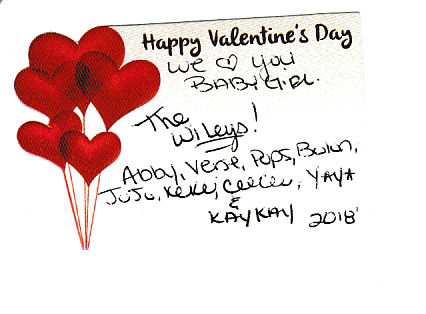 Happy Valentine's Day
We ♡ You
BABY GIRL.
The
Wileys!
Abby, Verse, Pops,
JuJu, KeKe, CeeCee, YAYA
&
KAYKAY 2018